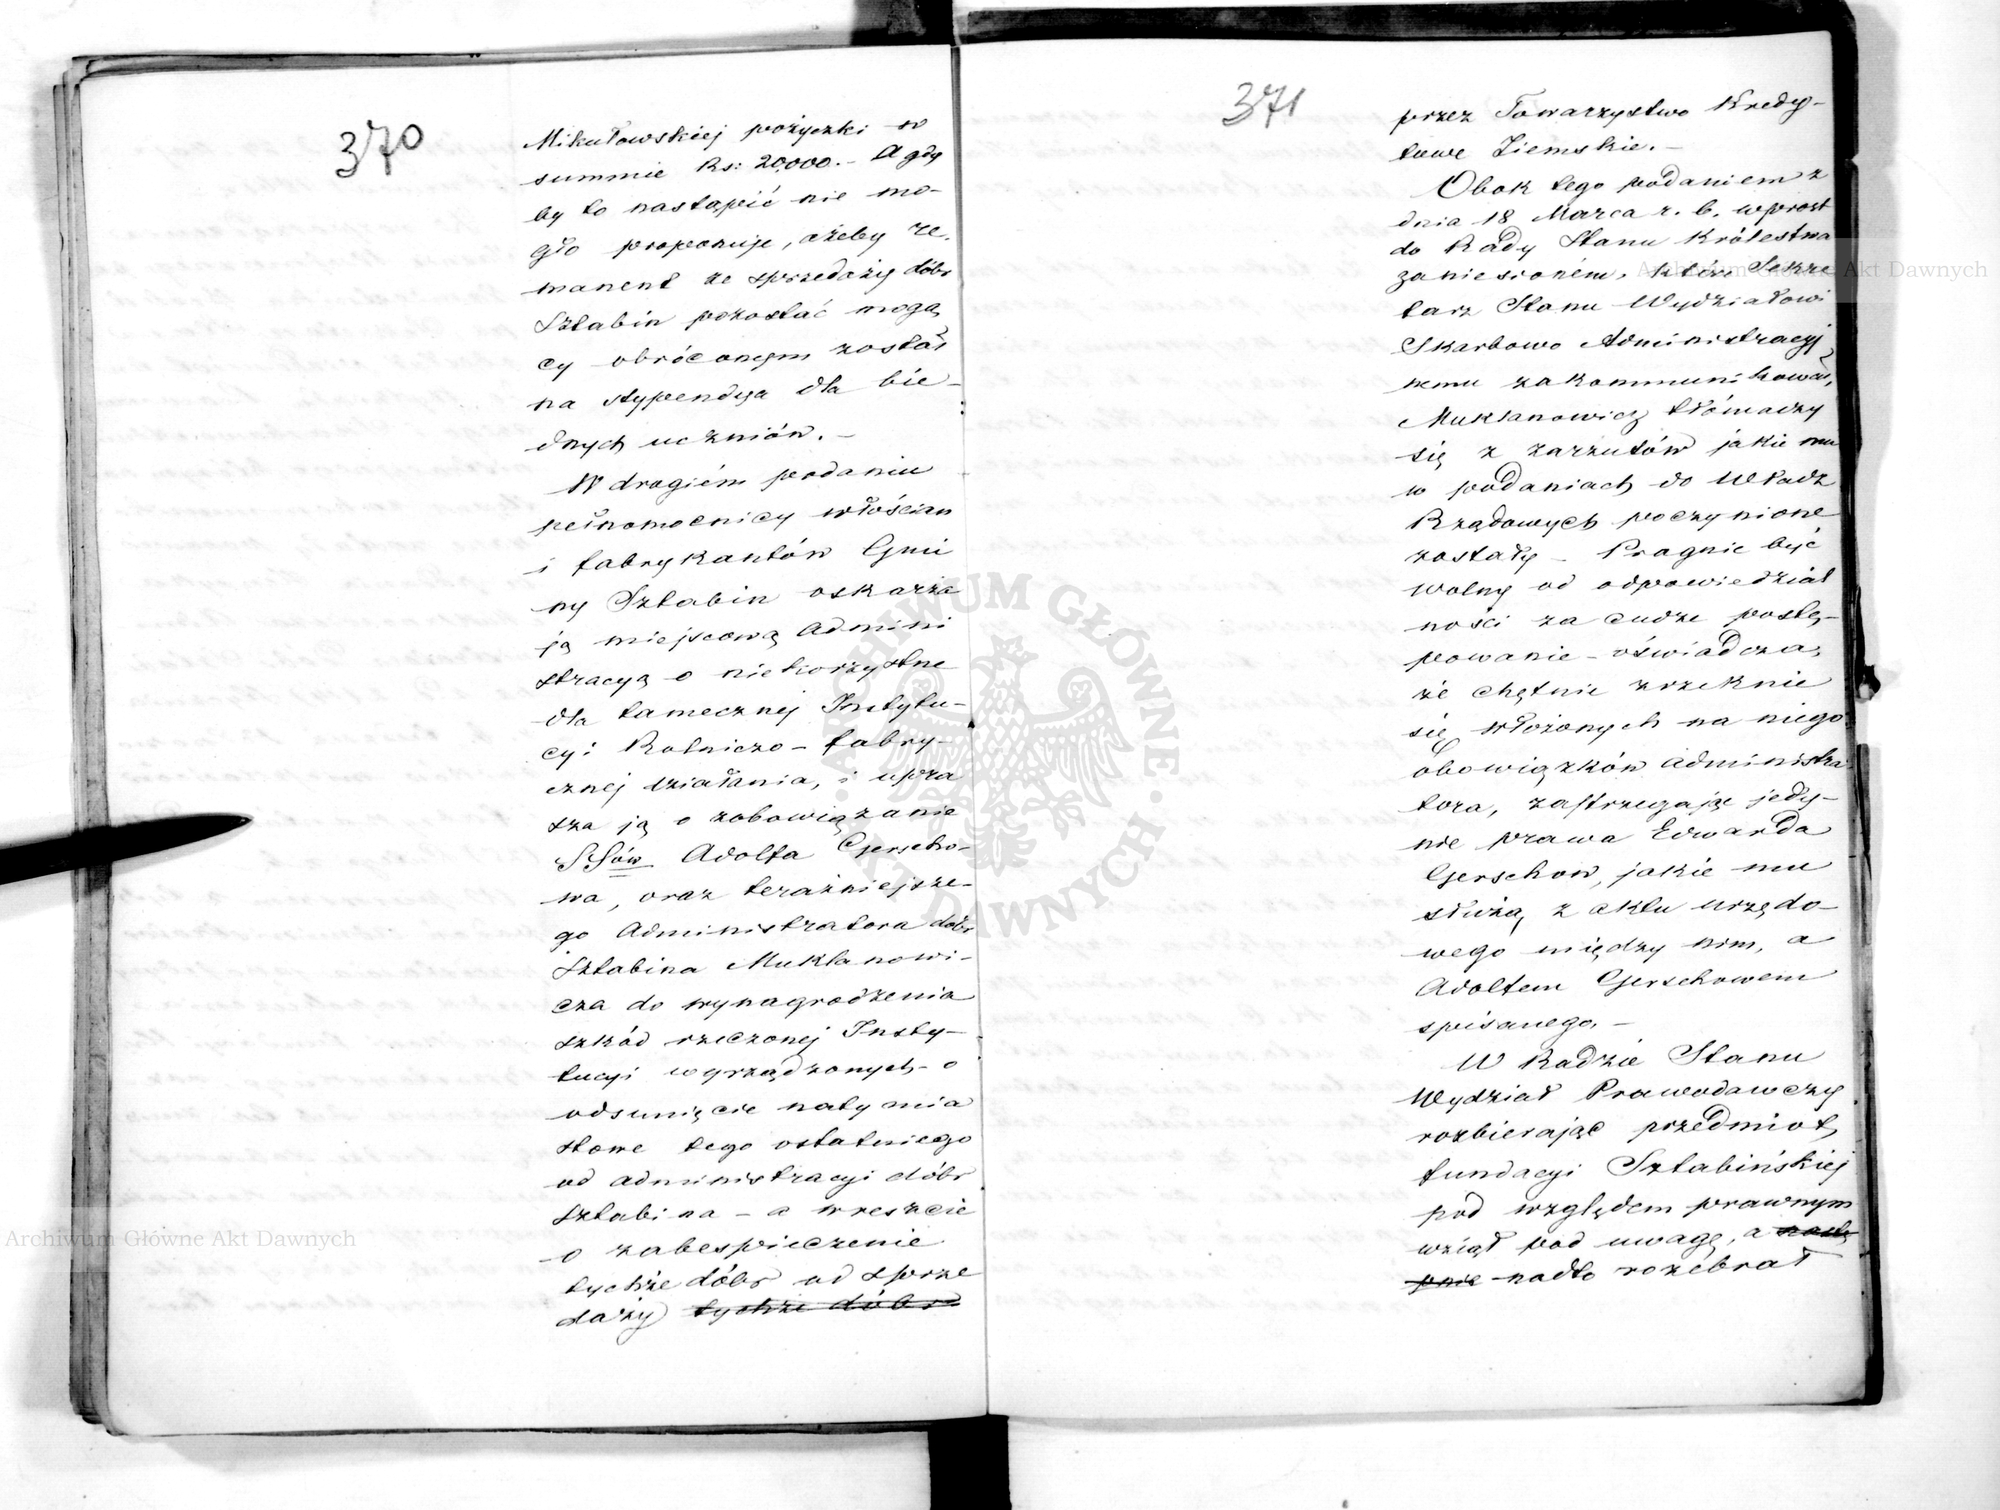 370
Mikułowskiej pożyczki w
summie Rs: 20,000.– A gdy
by to nastąpić nie mo-
gło proponuje, ażeby re-
manent ze sprzedaży dóbr
Sztabin pozostać mogą
cy obróconym został
na stypendya dla bie-
dnych uczniów. –
W drugiém podaniu
pełnomocnicy włościan
i fabrykantów Gmi
ny Sztabin oskarża
ją miejscową admini
stracyą o niekorzystne
dla tamecznej Instytu-
cyi Rolniczo-fabry-
cznej działania, i upra
sza ją o zobowiązanie
SSów Adolfa Gerscho-
wa, oraz teraźniejsze-
go Administratora dóbr
Sztabina Muklanowi-
cza do wynagrodzenia
szkód rzeczonej Insty-
tucyi wyrządzonych – o
odsunięcie natymia
stowe tego ostatniego
od administracyi dóbr
Sztabina – a wreszcie
o zabespieczenie
tychże dóbr od sprze
daży tychże dóbr
371
przez Towarzystwo Kredy-
towe Ziemskie. –
Obok tego podaniem z
dnia 18 Marca r. b. wprost
do Rady Stanu Królestwa
zaniesioném, które Sekre
tarz Stanu Wydziałowi
Skarbowo Administracyj
nemu zakommunikował,
Muklanowicz tłómaczy
się z zarzutów jakie mu
w podaniach do Władz
Rządowych poczynione
zostały – Pragnie być
wolny od odpowiedzial
ności za cudze postę-
powanie – oświadcza,
że chętnie zrzeknie
się włożonych na niego
obowiązków administra
tora, zastrzegając jedy-
nie prawa Edwarda
Gerschow, jakie mu
służą z aktu urzędo-
wego między nim, a
Adolfem Gerschowem
spisanego. –
W Radzie Stanu
Wydział Prawodawczy
rozbierając przedmiot
fundacyi Sztabińskiej
pod względem prawnym
wziął pod uwagę, a nastę
pnie nadto rozebrał
Archiwum Główne Akt Dawnych
Archiwum Główne Akt Dawnych
ARCHIWUM GŁÓWNE AKT DAWNYCH